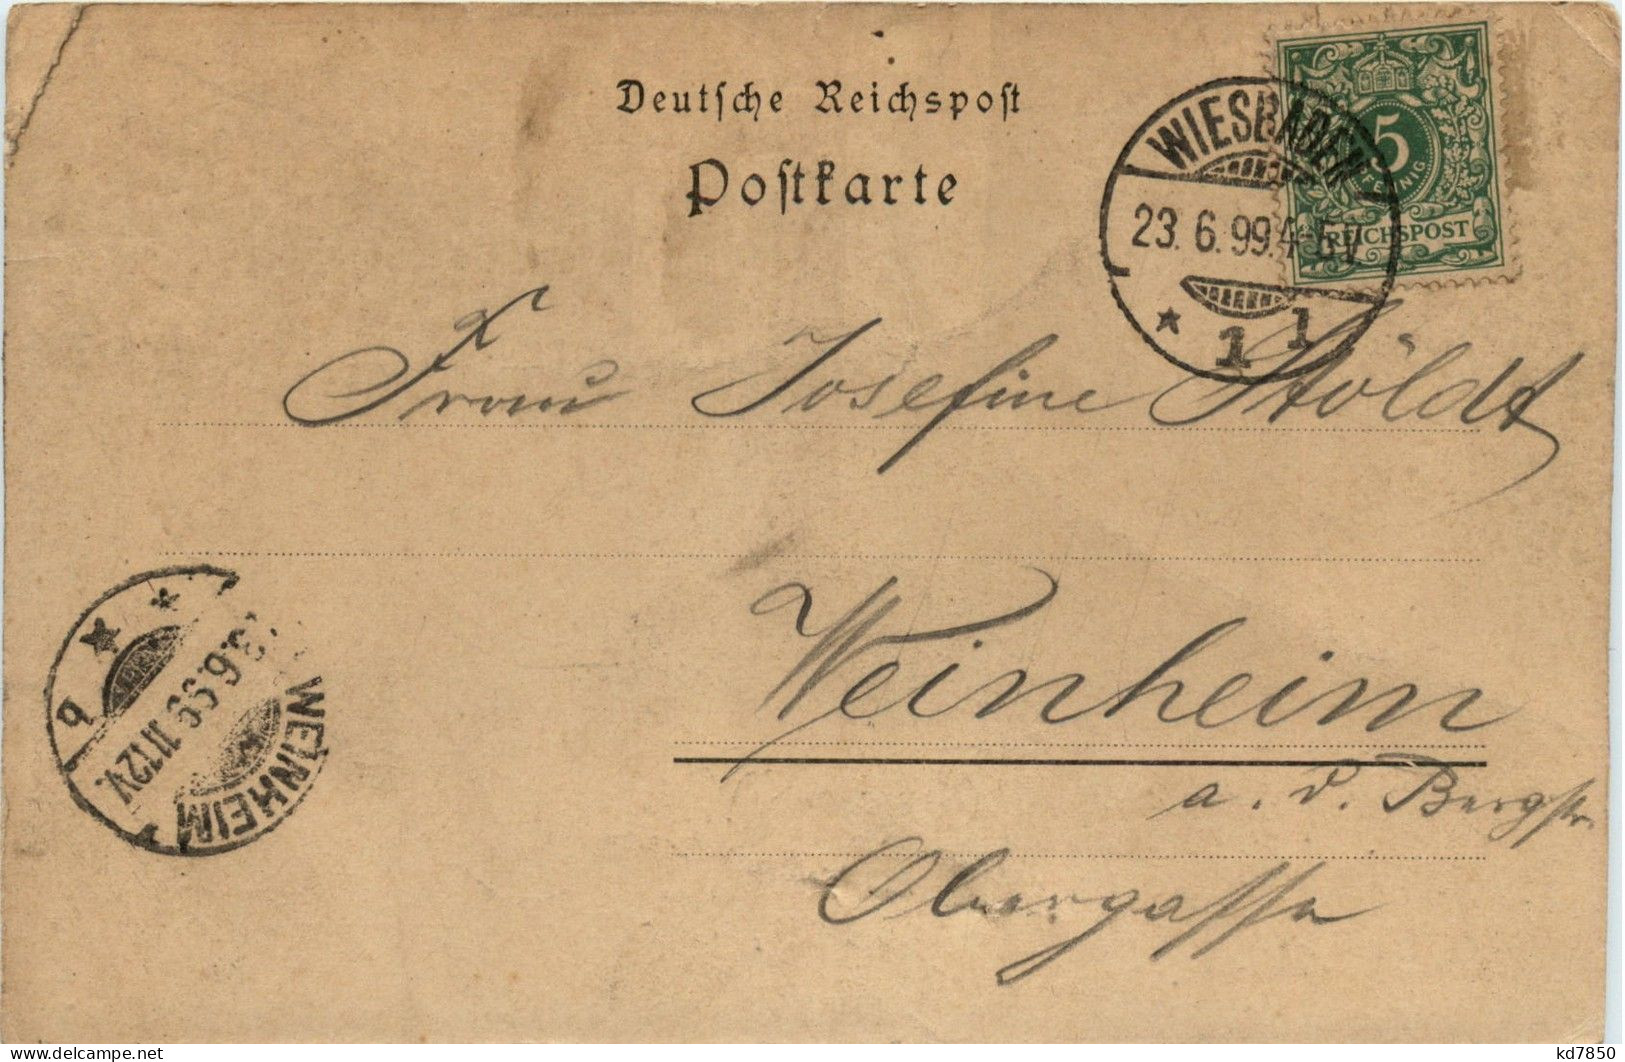 Deutsche Reichspost
Postkarte
5
PFENNIG
REICHSPOST
WIESBADEN
23. 6. 99. 4-5 V.
* 1 1
Frau Josefine Stöldt
Weinheim
a. d. Bergstr.
Obergasse
WEINHEIM
.6.99. 11-12V.
www.delcampe.net
kd7850